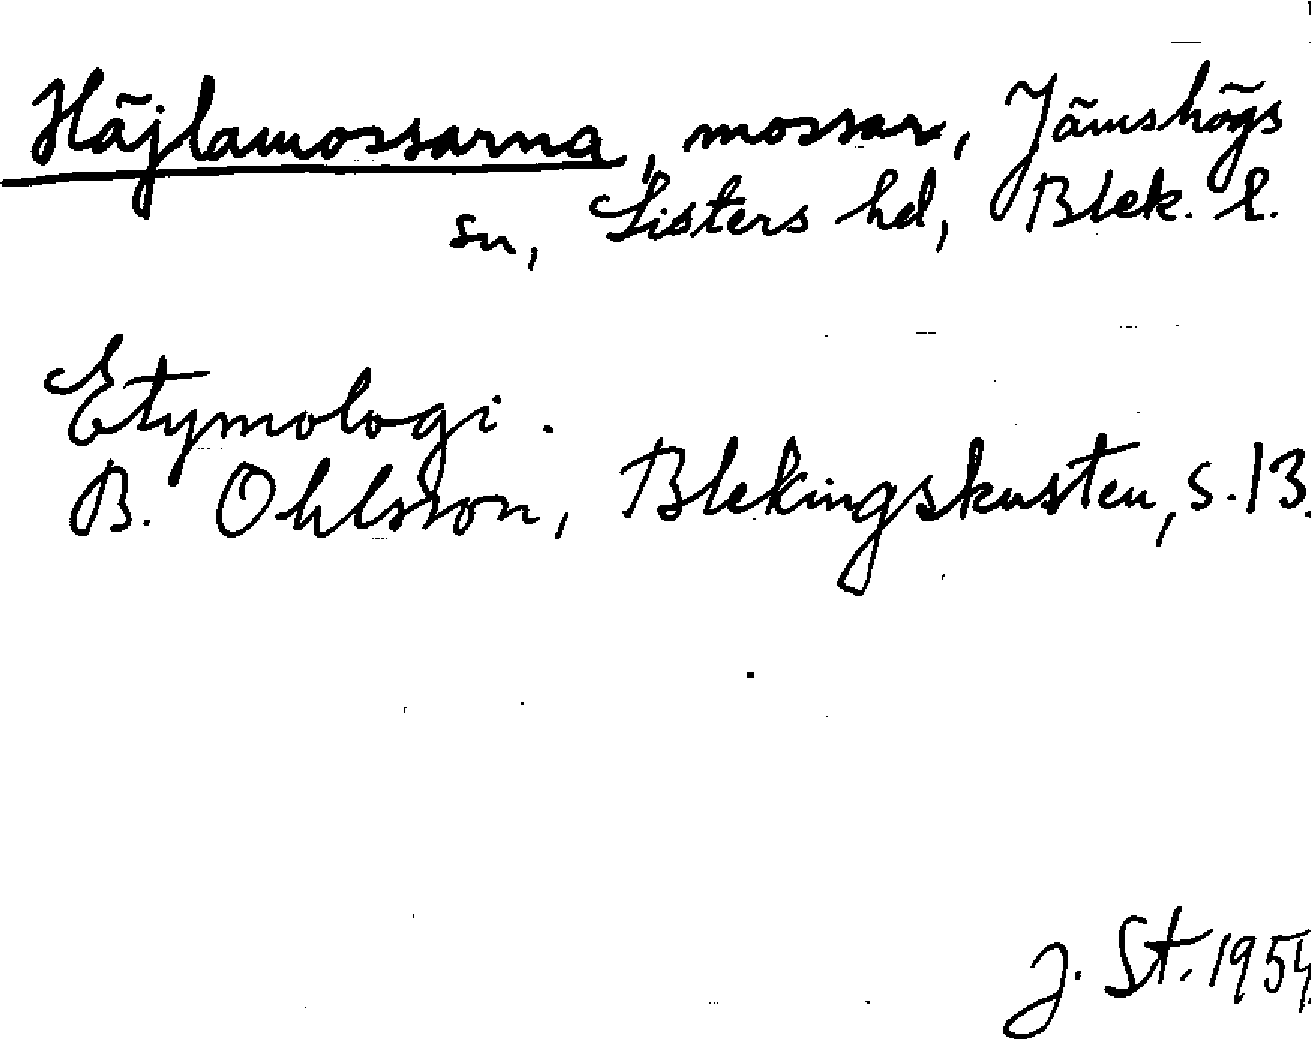 Häjlamossarna, mossar, Jämshögs
sn, Listers hd, Blek. l.
Etymologi.
B. Ohlsson, Blekingskusten, s. 13.
J. St. 1954